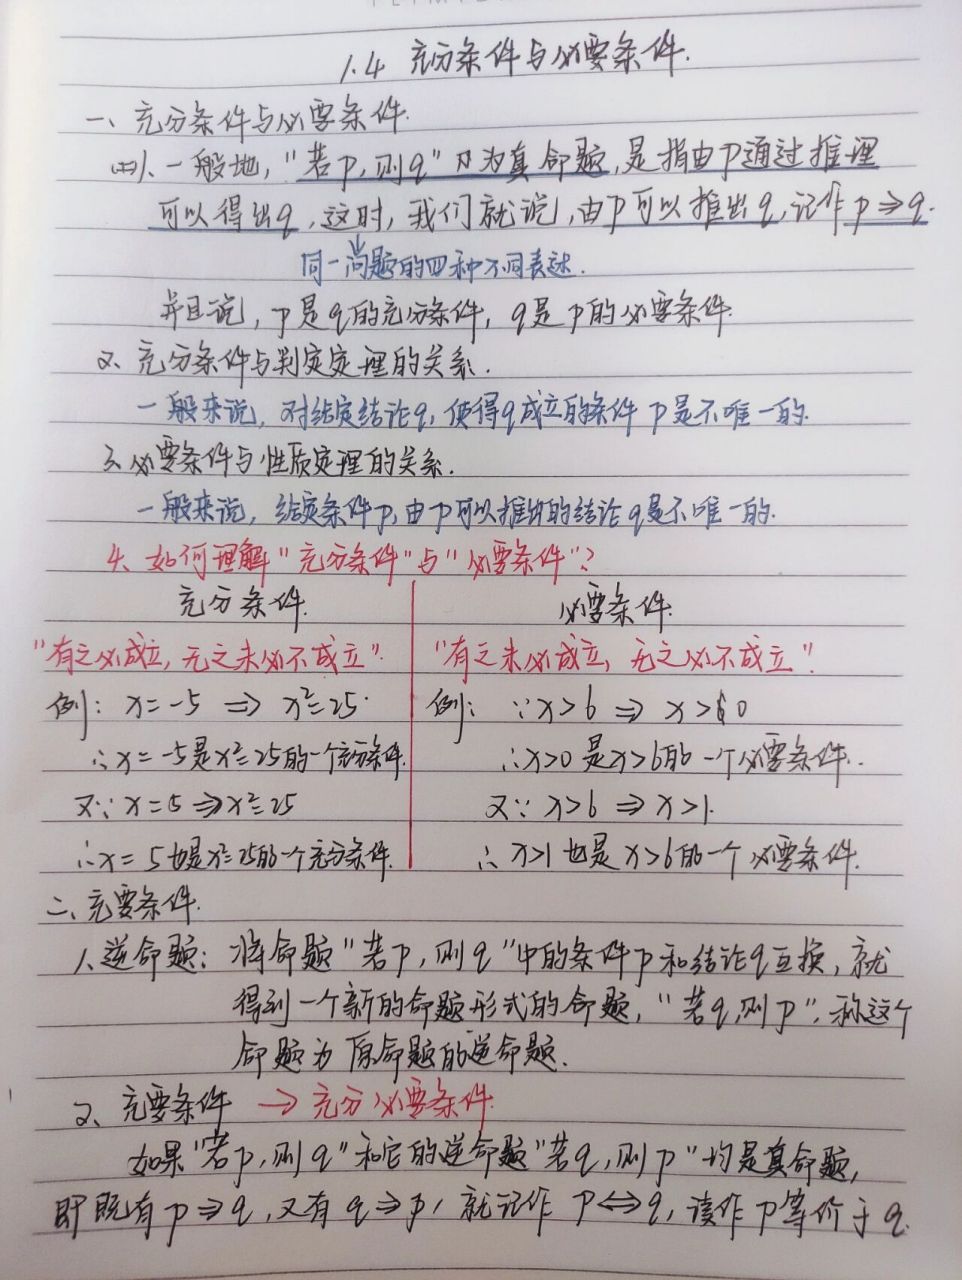 1.4 充分条件与必要条件.
一、充分条件与必要条件.
一般地，"若p，则q"为真命题，是指由p通过推理
可以得出q，这时，我们就说，由p可以推出q，记作p⇒q.
同一问题的四种不同表达.
并且说，p是q的充分条件，q是p的必要条件.
2、充分条件与判定定理的关系.
一般来说，对给定结论q，使得q成立的条件p是不唯一的.
3、必要条件与性质定理的关系.
一般来说，给定条件p，由p可以推出的结论q是不唯一的.
4、如何理解"充分条件"与"必要条件"？
充分条件.
"有之必成立，无之未必不成立".
例：x=-5 ⇒ x²=25.
∴x=-5是x²=25的一个充分条件.
又∵x=5⇒x²=25
∴x=5也是x²=25的一个充分条件.
必要条件.
"有之未必成立，无之必不成立"！
例：∵x>6 ⇒ x>0
∴x>0是x>6的一个必要条件.
又∵x>6 ⇒ x>1.
∴x>1也是x>6的一个必要条件.
二、充要条件.
1、逆命题：将命题"若p，则q"中的条件p和结论q互换，就
得到一个新的命题形式的命题，"若q，则p"，称这个
命题为原命题的逆命题.
2、充要条件 →充分必要条件.
如果"若p，则q"和它的逆命题"若q，则p"均是真命题，
即既有p⇒q，又有q⇒p，就记作p⇔q，读作p等价于q.